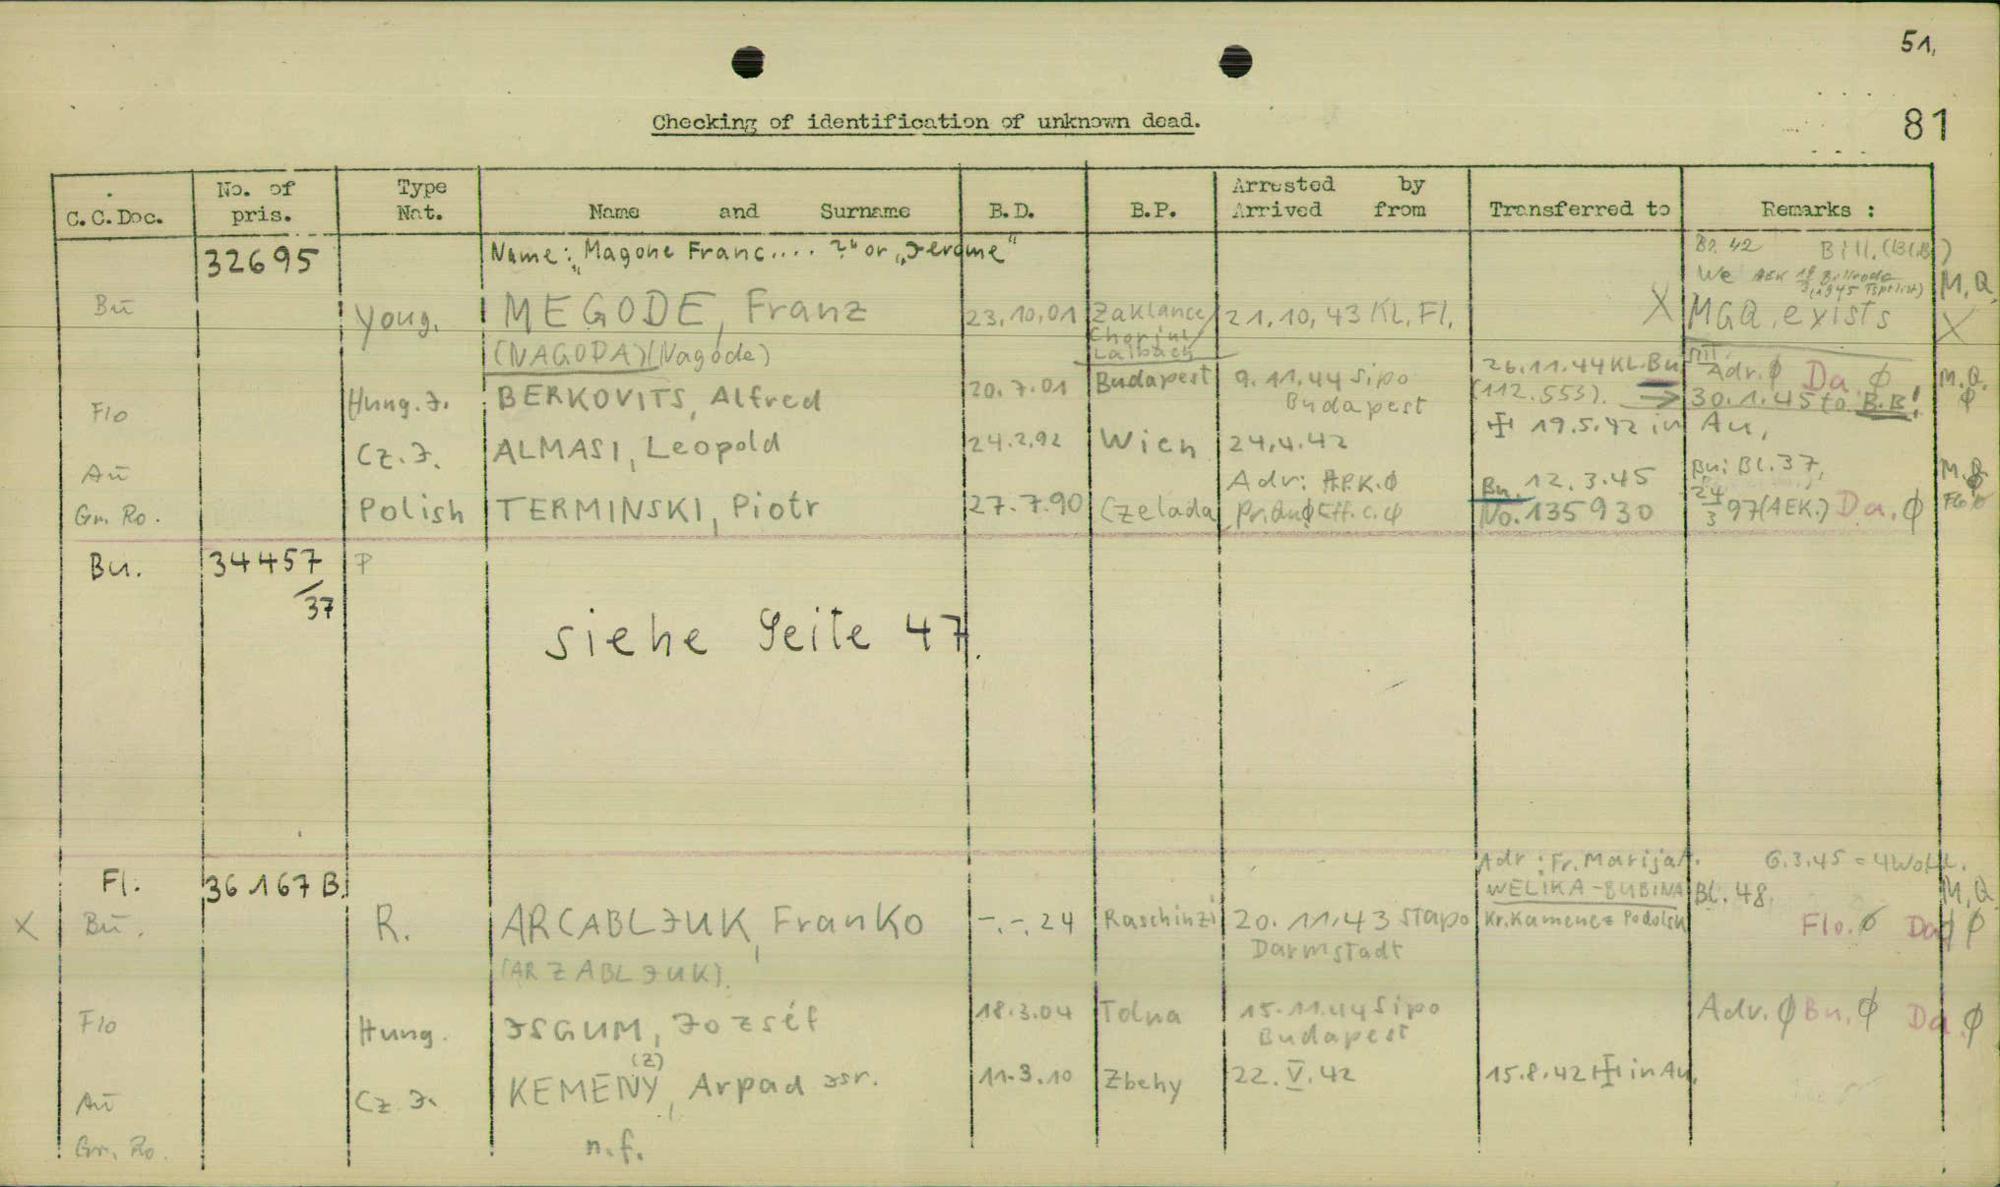 51.
81
Checking of identification of unknown dead.
C.C.Doc. No. of pris. Type Nat. Name and Surname B.D. B.P. Arrested by Arrived from Transferred to Remarks :
32695 Name: „Magone Franc.... ?" or „Jerome"
We
M.Q.
Bu Youg. MEGODE, Franz 23.10.01 Zaklance/ 21.10.43 KL.Fl. X MGQ exists X
(NAGODA) (Nagode) Laibach
Flo Hung.J. BERKOVITS, Alfred 20.7.01 Budapest 9.11.44 Sipo Budapest 26.11.44 KL.Bu (112.553). → Adr. ϕ Da ϕ 30.1.45 to B.B! M.Q. ϕ
Au Cz.J. ALMASI, Leopold 24.2.92 Wien 24.4.42 19.5.42 in Au.
Gr. Ro. Polish TERMINSKI, Piotr 27.7.90 Czelada Adv: A.P.K.ϕ Bu. 12.3.45 No. 135930 Bu: Bl.37, 24/3 97 (AEK.) Da. ϕ M.Q.
Bu. 34457/37 P
siehe Seite 47.
Fl. 36167 B.
Adr: Fr. Marija
WELIKA-BUBINA
Kr. Kamenez Podolsk
6.3.45 =
Bl. 48
M.Q.
X Bu. R. ARCABLJUK, Franko -.-.24 Raschinzi 20.11.43 Stapo Darmstadt Flo. ϕ Da ϕ
(ARZABLJUK).
Flo Hung. JSGUM, Jozséf 18.3.04 Tolna 15.11.44 Sipo Budapest Adv. ϕ Bu. ϕ Da ϕ
Au Cz J. KEMENY (Z), Arpad Jsr. 11.3.10 Zbehy 22.V.42 15.8.42 in Au.
Gr. Ro. n.f.